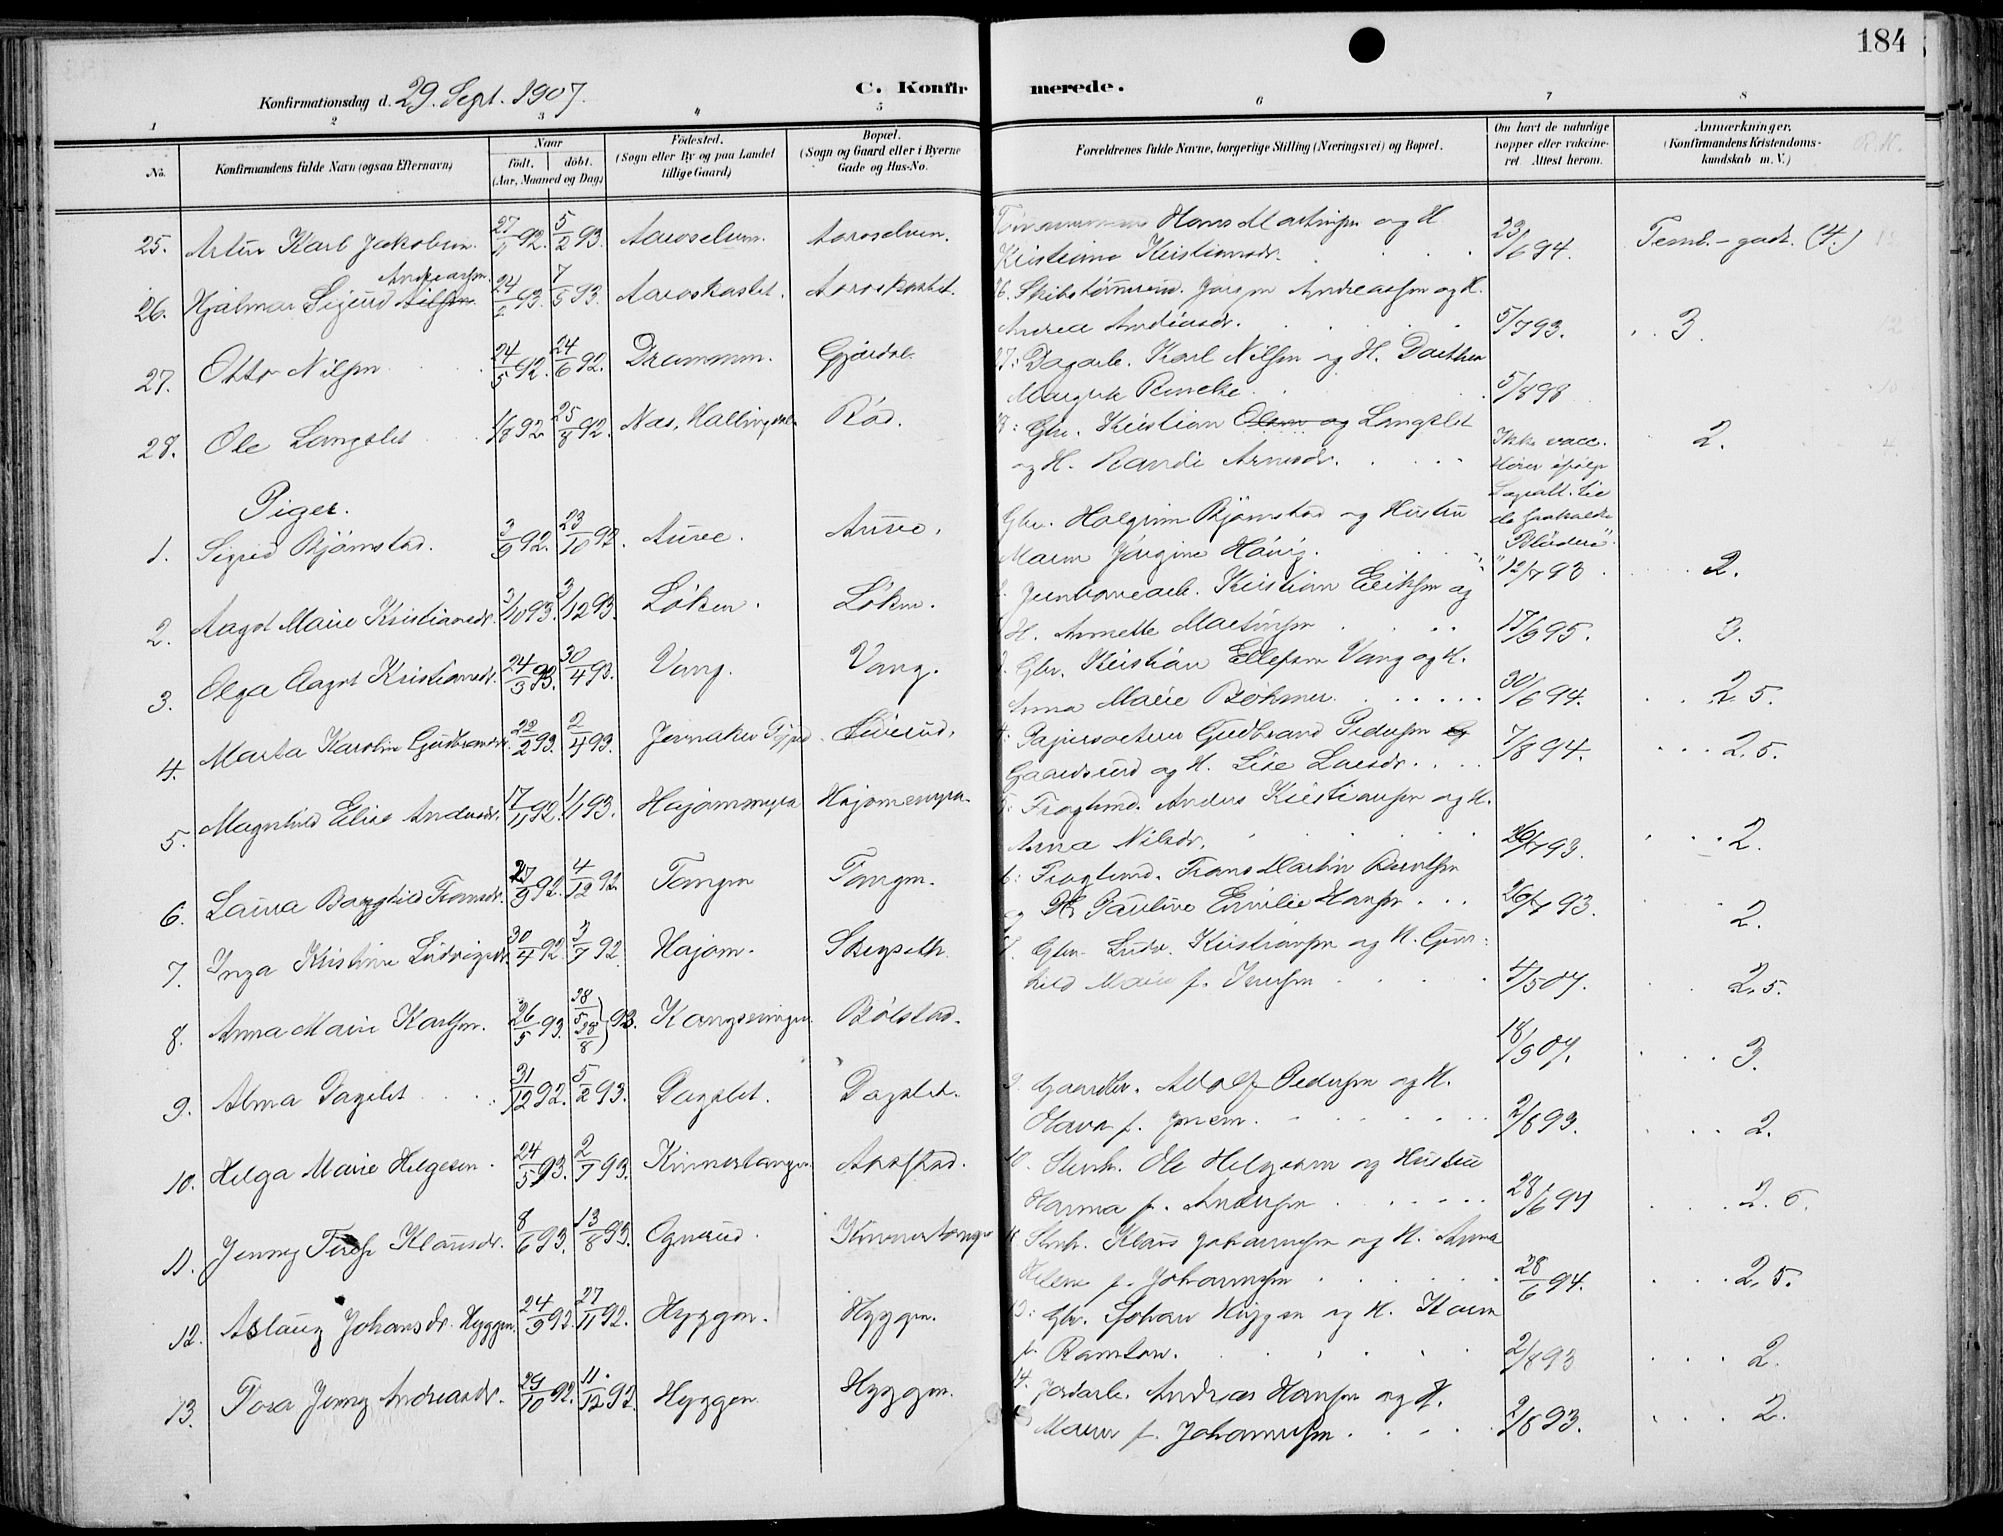 184
Konfirmationsdag d. 29. Sept. 1907.
C. Konfirmerede.
1 2 3 4 5 6 7 8
No.
Konfirmandens fulde Navn (ogsaa Efternavn)
Naar
født. døbt.
(Aar, Maaned og Dag)
Fødested.
(Sogn eller By og paa Landet
tillige Gaard)
Bopæl.
(Sogn og Gaard eller i Byerne
Gade og Hus-No.
Forældrenes fulde Navne, borgerlige Stilling (Næringsvei) og Bopæl.
Om havt de naturlige
Kopper eller vakcine-
ret. Attest herom.
Anmærkninger,
(Konfirmandens Kristendoms-
kundskab m. V.)
25. Artur Karl Jakobsen. 27/11 92. 5/2 93. Aaroselven. Aaroselven. Hans Martinsen og H.
Kristiane Kristiansdr. 23/6 94. Temel.-godt. (4.)
Andreassen
26. Hjalmar Sigurd 24/2 93. 7/5 93. Aaroskastet. Aaroskastet. 26. Skibstømmerm. Jørgen Andreassen og H.
Andrea Andreasdr. 5/7 93. 3.
27. Otto Nilsen 24/5 92. 24/6 92. Drammen. Gjerdal. 27: Dagarb. Karl Nilsen og H. Dorthea
Margrete Rincke. 5/8 98
28. Ole Langslet 1/8 92 25/8 92. Nes, Hallingdal. Rød. 28: Gbr. Kristian Olsen og Langslet
og H. Randi Arnesdr. Ikke vacc. 2.
Piger.
1. Sigrid Bjømstad. 3/9 92. 23/10 92. Auvee. Auvee. Gbr. Halgrim Bjømstad og Hustru
Maren Jørgine Høvig. 12/7 93. 2.
2. Aagot Marie Kristiansdr. 3/10 93. 3/12 93. Løken. Løken. Jernbanearb. Kristian Eriksen og
H. Annette Martinsen 17/9 95. 3.
3. Olga Aagot Kristiansdr. 24/3 93. 30/4 93. Vang. Vang. Gbr. Kristian Ellefsen Vang og H.
Anna Marie Bohmer. 30/6 94. 2.5.
4. Marta Karoline Gudbrandsdr. 22/2 93. 2/4 93. Jevnaker Liverud. 4: Gudbrand Pedersen
Gaardsrud og H. Lise Larsdr. 7/8 94. 2.5.
5. Magnhild Elise Andersdr. 17/11 92. 1/1 93. Højommyra Højommyra. 5: Fragtmd. Anders Kristiansen og H.
Anna Nilsdr. 26/7 93. 2.
6. Laura Borghild Fransdr. 27/9 92. 4/12 92. Tangen Tangen. 6: Fragtmd. Frans Martin Berntsen
og H. Pauline Emilie Hansen 26/7 93. 2.
7. Inga Kristine Ludvigsdr. 30/4 92. 3/7 92. Højom. Skegseth. Gbr. Ludv. Kristiansen og H. Gun-
hild Marie f. Iversen 4/5 07. 2.5.
8. Anna Marie Karlsen. 26/5 93. 28/5 28/8 93. Kongsvinger. Bølstad. 18/9 07. 3.
9. Alma Dagslet 31/12 92. 5/2 93. Dagslet. Dagslet. 9. Gaardbr. Adolf Pedersen og H.
Olava f. Jensen. 2/8 93. 2.
10. Helga Marie Helgesen. 24/5 93. 2/7 93. Kinnertangen. 10. Stenh. Ole Helgesen og Hustru
Hanna f. Andersen 28/6 94 2.5.
11. Jenny Terese Klausdr. 8/6 93. 13/8 93. Ognerud. Kinnertangen 11 Stenh. Klaus Johannesen og H. Anna
Helene f. Johannesen 28/6 94. 2.5.
12. Aslaug Johansdr. Hyggen. 24/9 92. 27/11 92. Hyggen. Hyggen. Gbr. Johan Hyggen og H. Karen
f. Ramton. 2/8 93 2.
13. Tora Jenny Andreasdr. 29/10 92. 11/12 92. Hyggen. Hyggen. Jordarb. Andreas Hansen og H.
Maren f. Johannesen. 2/8 93. 2.